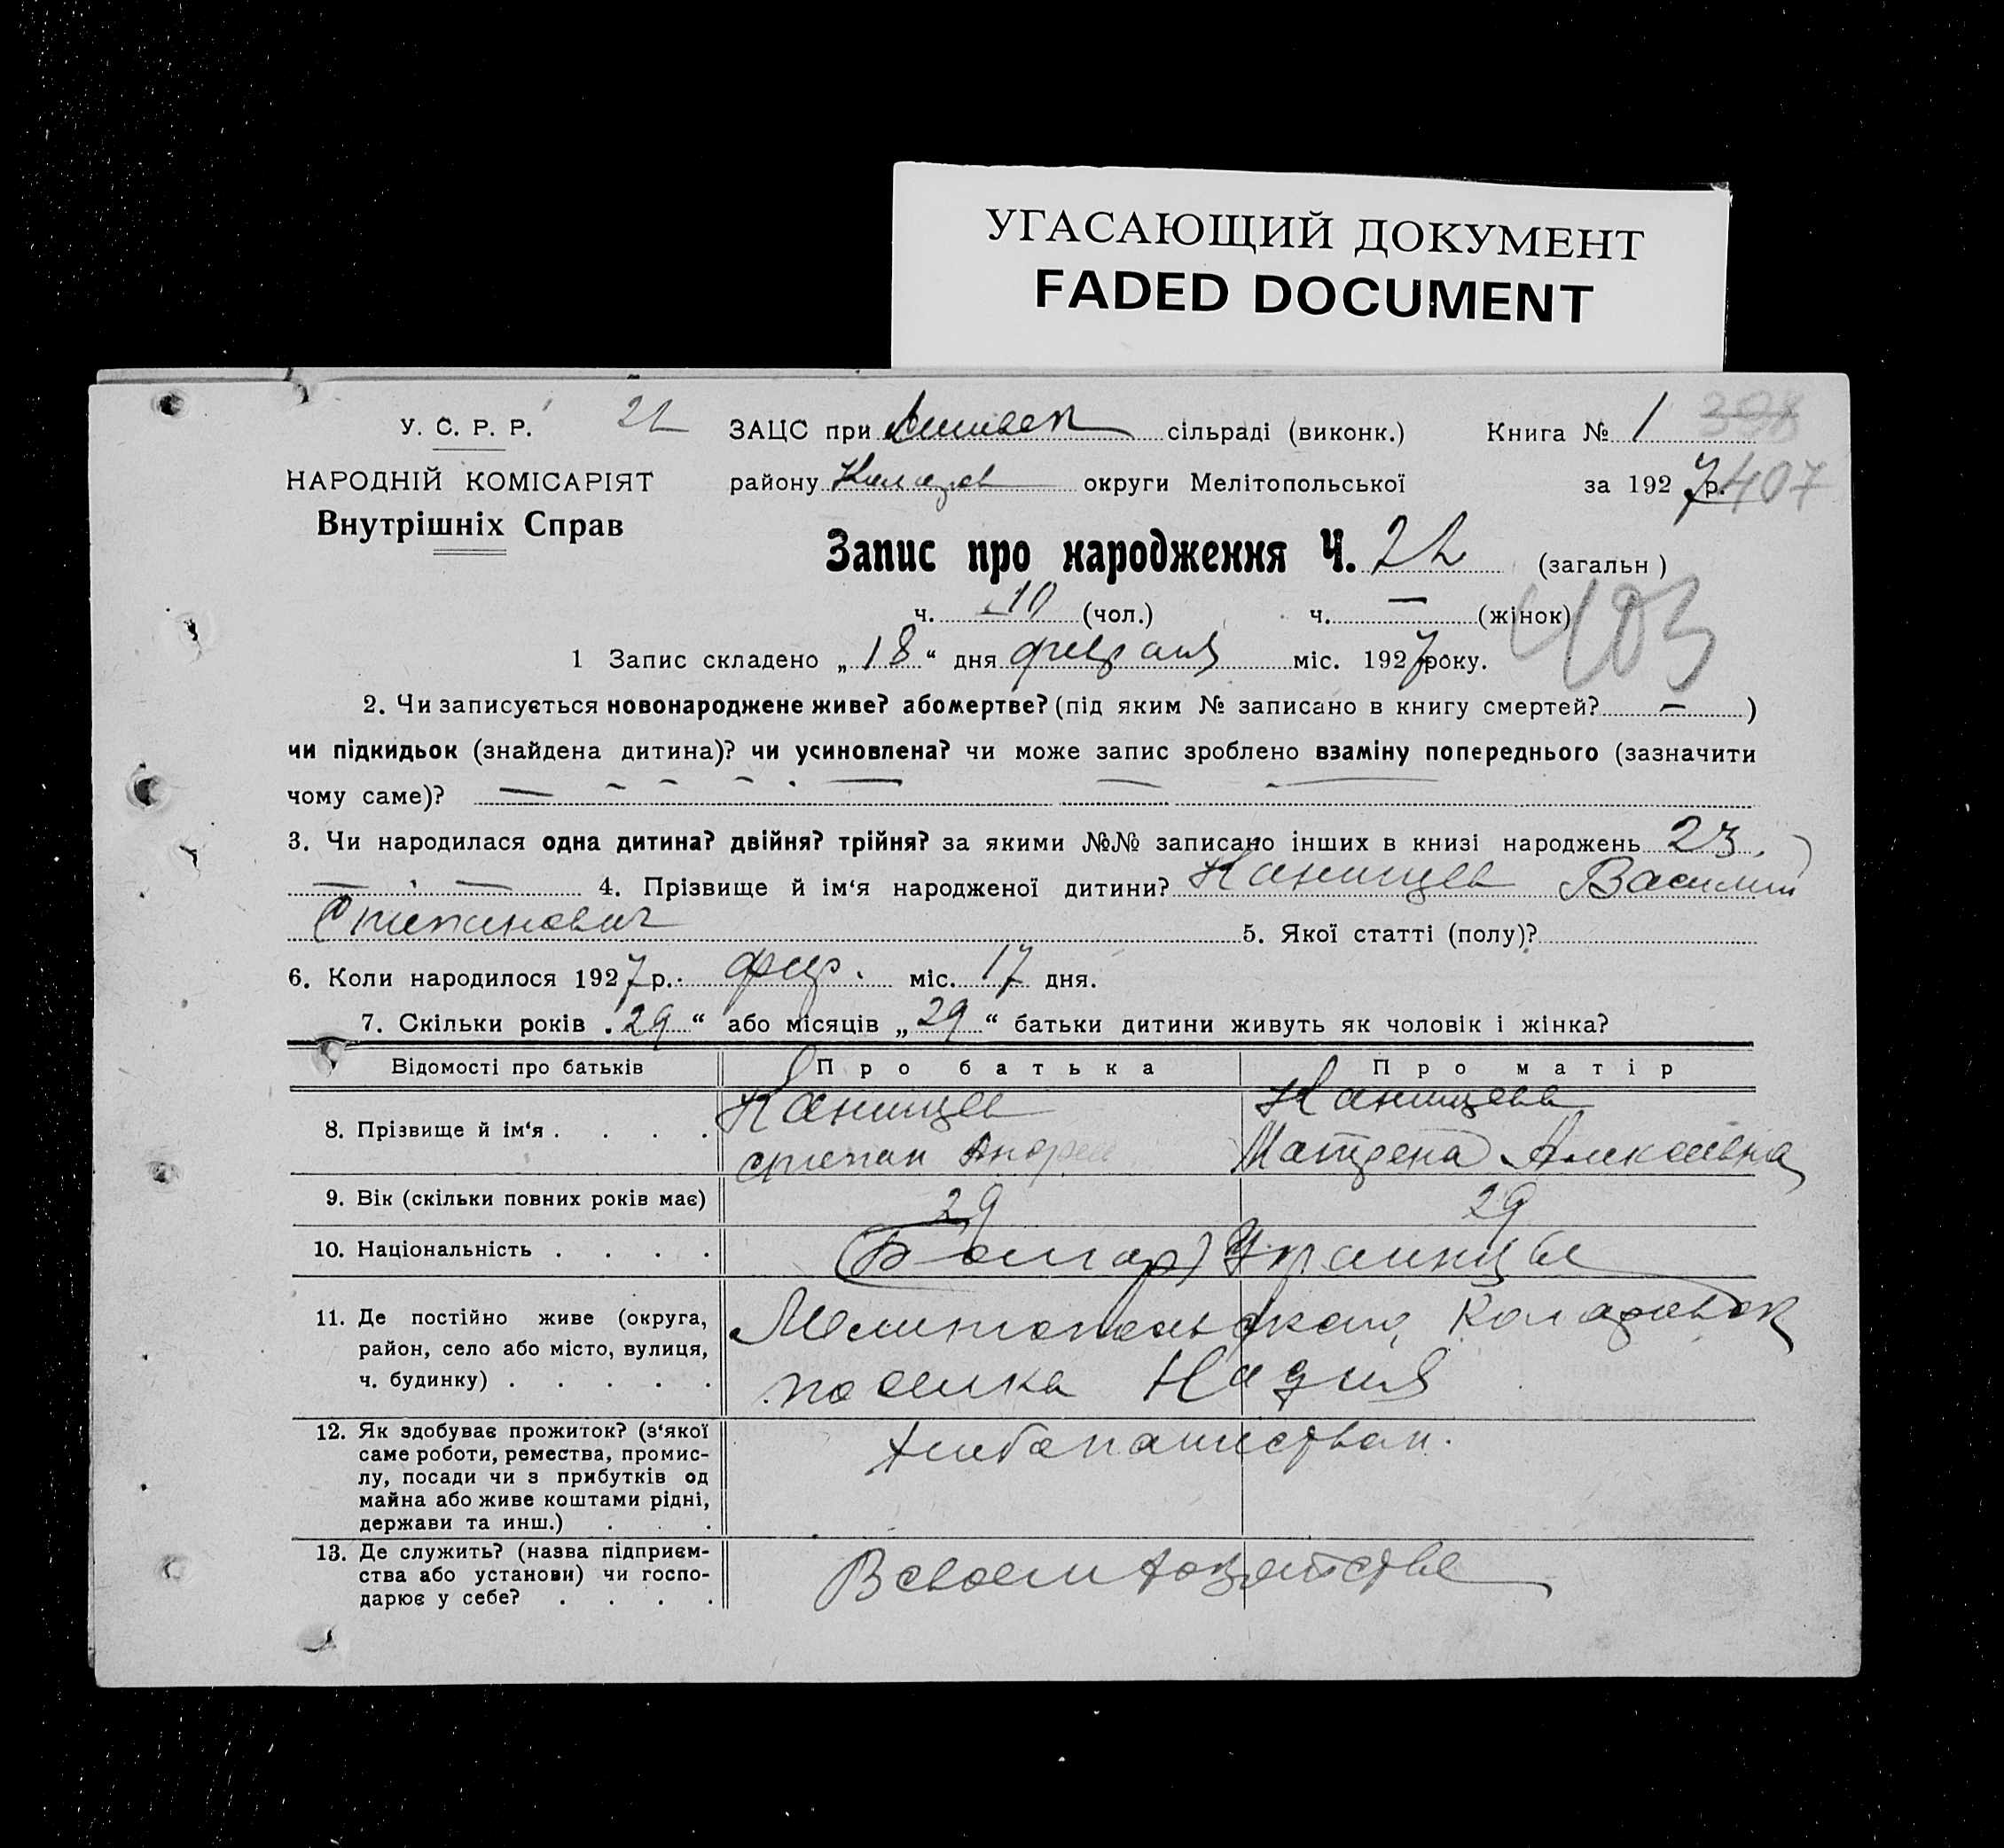 УГАСАЮЩИЙ ДОКУМЕНТ
FADED DOCUMENT
У. С. Р. Р.
22
ЗАЦС при сільраді (виконк.) Книга № 1 398
НАРОДНІЙ КОМІСАРІЯТ
Внутрішніх Справ
району округи Мелітопольської за 1927 р. 407
Запис про народження Ч. 22 (загальн)
ч. 10 (чол.) ч. — (жінок)
403
1 Запис складено „18“ дня февраля міс. 1927 року.
2. Чи записується новонароджене живе? або мертве? (під яким № записано в книгу смертей? — )
чи підкидьок (знайдена дитина)? чи усиновлена? чи може запис зроблено взаміну попереднього (зазначити
чому саме)? — - - - . — — -
3. Чи народилася одна дитина? двійня? трійня? за якими №№ записано інших в книзі народжень 23.
— . — 4. Прізвище й ім‘я народженої дитини? Канищев Василий
Степанович 5. Якої статті (полу)?
6. Коли народилося 1927 р. фев. міс. 17 дня.
7. Скільки років „29“ або місяців „29“ батьки дитини живуть як чоловік і жінка?
Відомості про батьків Про батька Про матір
8. Прізвище й ім‘я . . . . Канищев Канищева
Степан Андрее Матрена Алексеевна
9. Вік (скільки повних років має) 29 29
10. Національність . . . . (Болгар) Украинцы
11. Де постійно живе (округа,
район, село або місто, вулиця,
ч. будинку) . . . . .
Мелитопольского,
поселка Надия
12. Як здобуває прожиток? (з‘якої
саме роботи, ремества, промис-
лу, посади чи з прибутків од
майна або живе коштами рідні,
держави та инш.) . . .
хлебопашеством.
13. Де служить? (назва підприєм-
ства або установи) чи госпо-
дарює у себе? . . . .
В своем хозяйстве